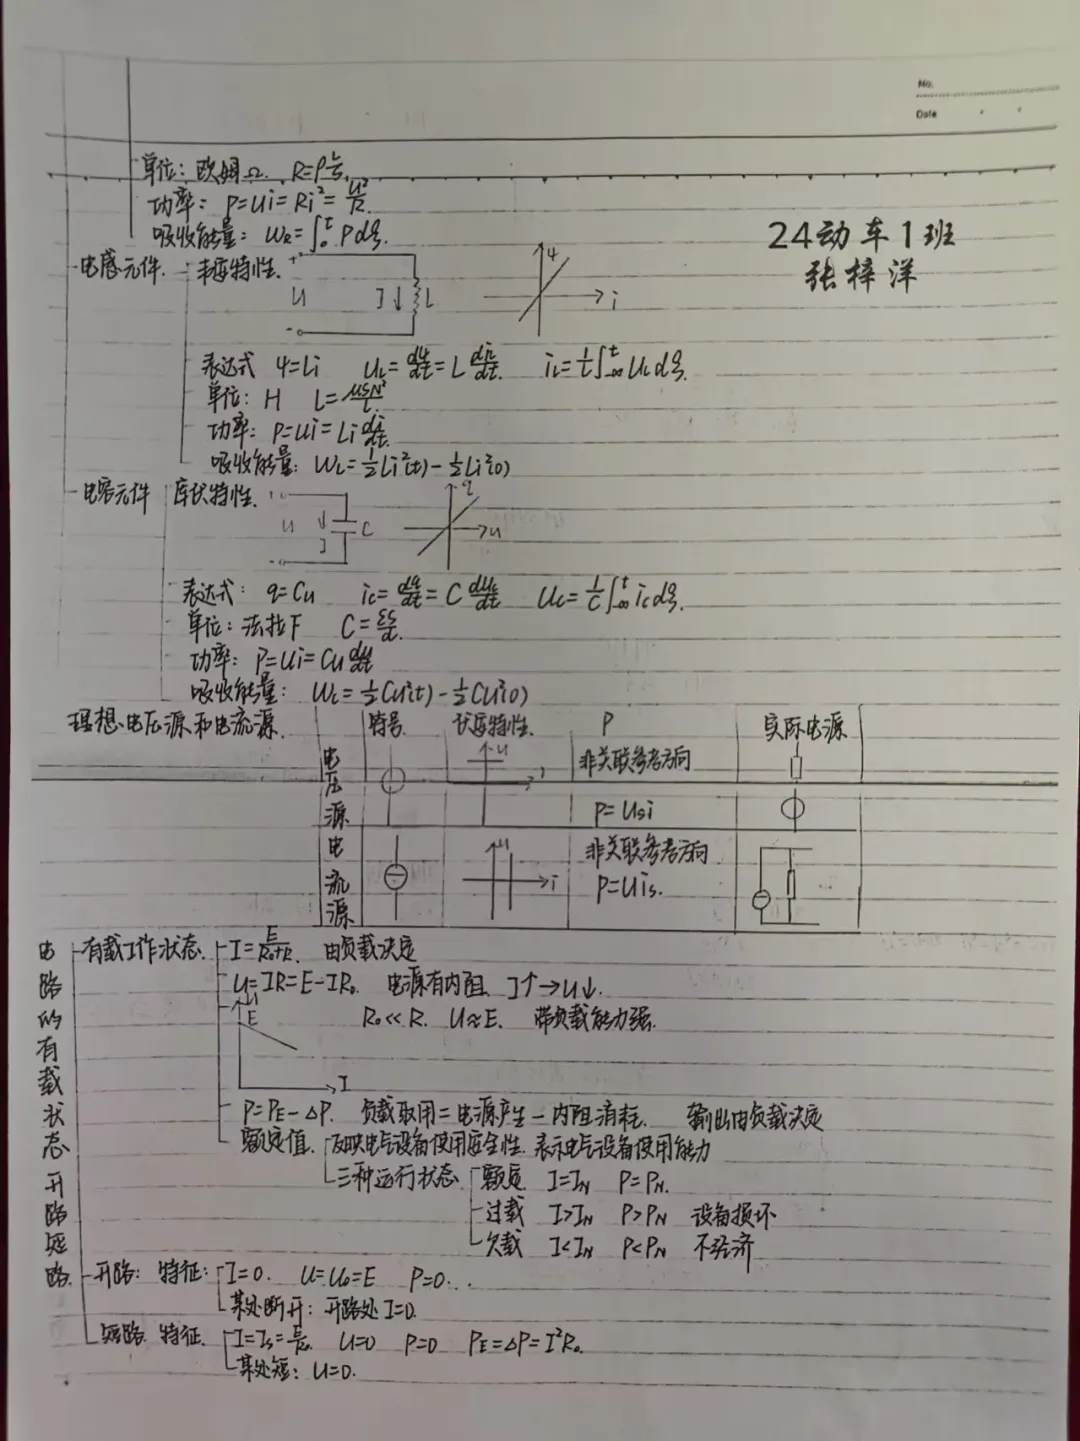 No.
Date
单位：欧姆Ω. R=ρL/S.
功率：P=Ui=Ri²=U²/R.
吸收能量：W_R=∫₀ᵗ P dξ.
24动车1班
张梓洋
电感元件 韦安特性.
+ U - I↓ L ψ i
表达式 ψ=Li U_L=dψ/dt=L di/dt. i_L=1/L∫₋∞ᵗ U_L dξ.
单位：H L=μSN²/L
功率：P=Ui=Li di/dt.
吸收能量：W_L=½Li²(t)-½Li²(0)
电容元件 库伏特性.
+ U - ↓I C q u
表达式：q=Cu i_C=dq/dt=C dU_C/dt U_C=1/C∫₋∞ᵗ i_C dξ.
单位：法拉F C=εS/d.
功率：P=Ui=Cu du/dt
吸收能量：W_C=½Cu²(t)-½Cu²(0)
理想电压源和电流源. 符号. 伏安特性. P 实际电源
电压源 u 非关联参考方向
P=U_Si
电流源 u i 非关联参考方向
P=Ui_S.
电路的有载状态开路短路.
有载工作状态. I=E/(R₀+R). 由负载决定
U=IR=E-IR₀. 电源有内阻. I↑→U↓.
U E I R₀≪R. U≈E. 带负载能力强.
P=P_E-ΔP. 负载取用=电源产生-内阻消耗. 输出由负载决定
额定值. 反映电气设备使用安全性. 表示电气设备使用能力
三种运行状态 额定 I=I_N P=P_N.
过载 I>I_N P>P_N 设备损坏
欠载 I<I_N P<P_N 不经济
开路：特征：I=0. U=U₀=E P=0.
某处断开：开路处I=0.
短路. 特征. I=I_S=E/R₀. U=0 P=0 P_E=ΔP=I²R₀.
某处短：U=0.